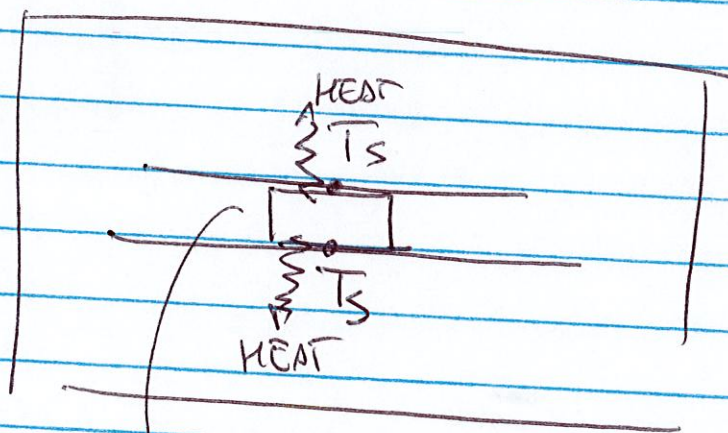 HEAT
Ts
Ts
HEAT